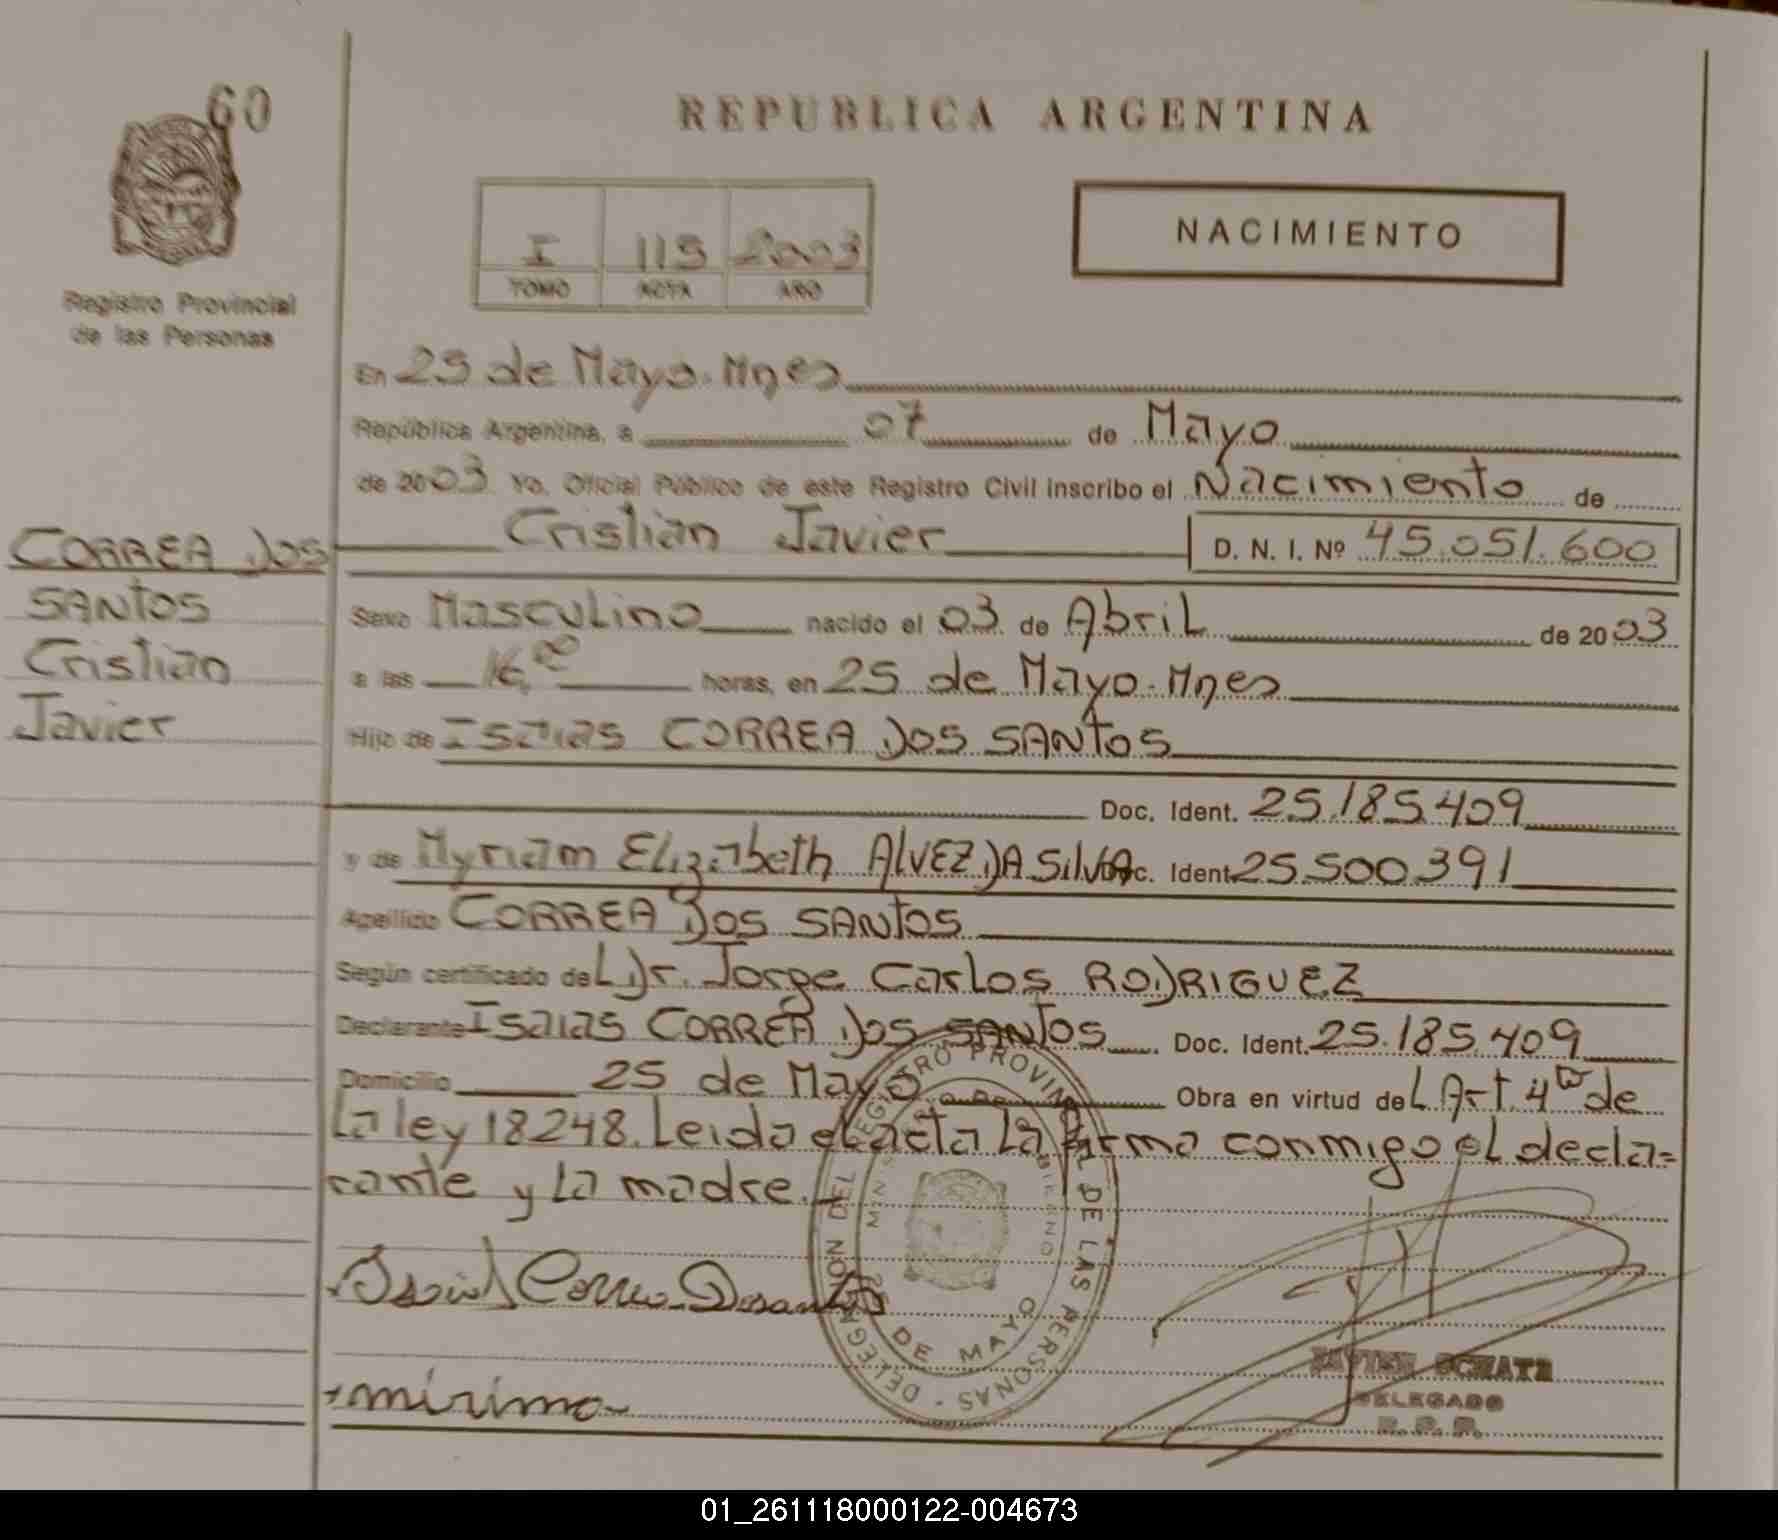 60
REPUBLICA ARGENTINA
NACIMIENTO
I 115 2003
TOMO ACTA AÑO
Registro Provincial
de las Personas
En 25 de Mayo. Mnes
República Argentina, a 07 de Mayo
de 2003 Yo, Oficial Público de este Registro Civil inscribo el Nacimiento de
Cristian Javier D. N. I. Nº 45.051.600
CORREA DOS
SANTOS
Cristian
Javier
Sexo Masculino nacido el 03 de Abril de 2003
a las 16,00 horas, en 25 de Mayo. Mnes
Hijo de Isaias CORREA DOS SANTOS
Doc. Ident. 25.185.409
y de Myriam Elizabeth ALVEZ DA SILVA Doc. Ident. 25.500.391
Apellido CORREA DOS SANTOS
Según certificado del Dr. Jorge Carlos RODRIGUEZ
Declarante Isaias CORREA DOS SANTOS Doc. Ident. 25.185.409
Domicilio 25 de Mayo Obra en virtud del Art. 4to de
La ley 18248. Leida el acta La firma conmigo el decla=
rante y La madre.
REGISTRO PROVINCIAL DE LAS PERSONAS - DELEGACION DEL
25 DE MAYO
DELEGADO
R. P. P.
01_261118000122-004673